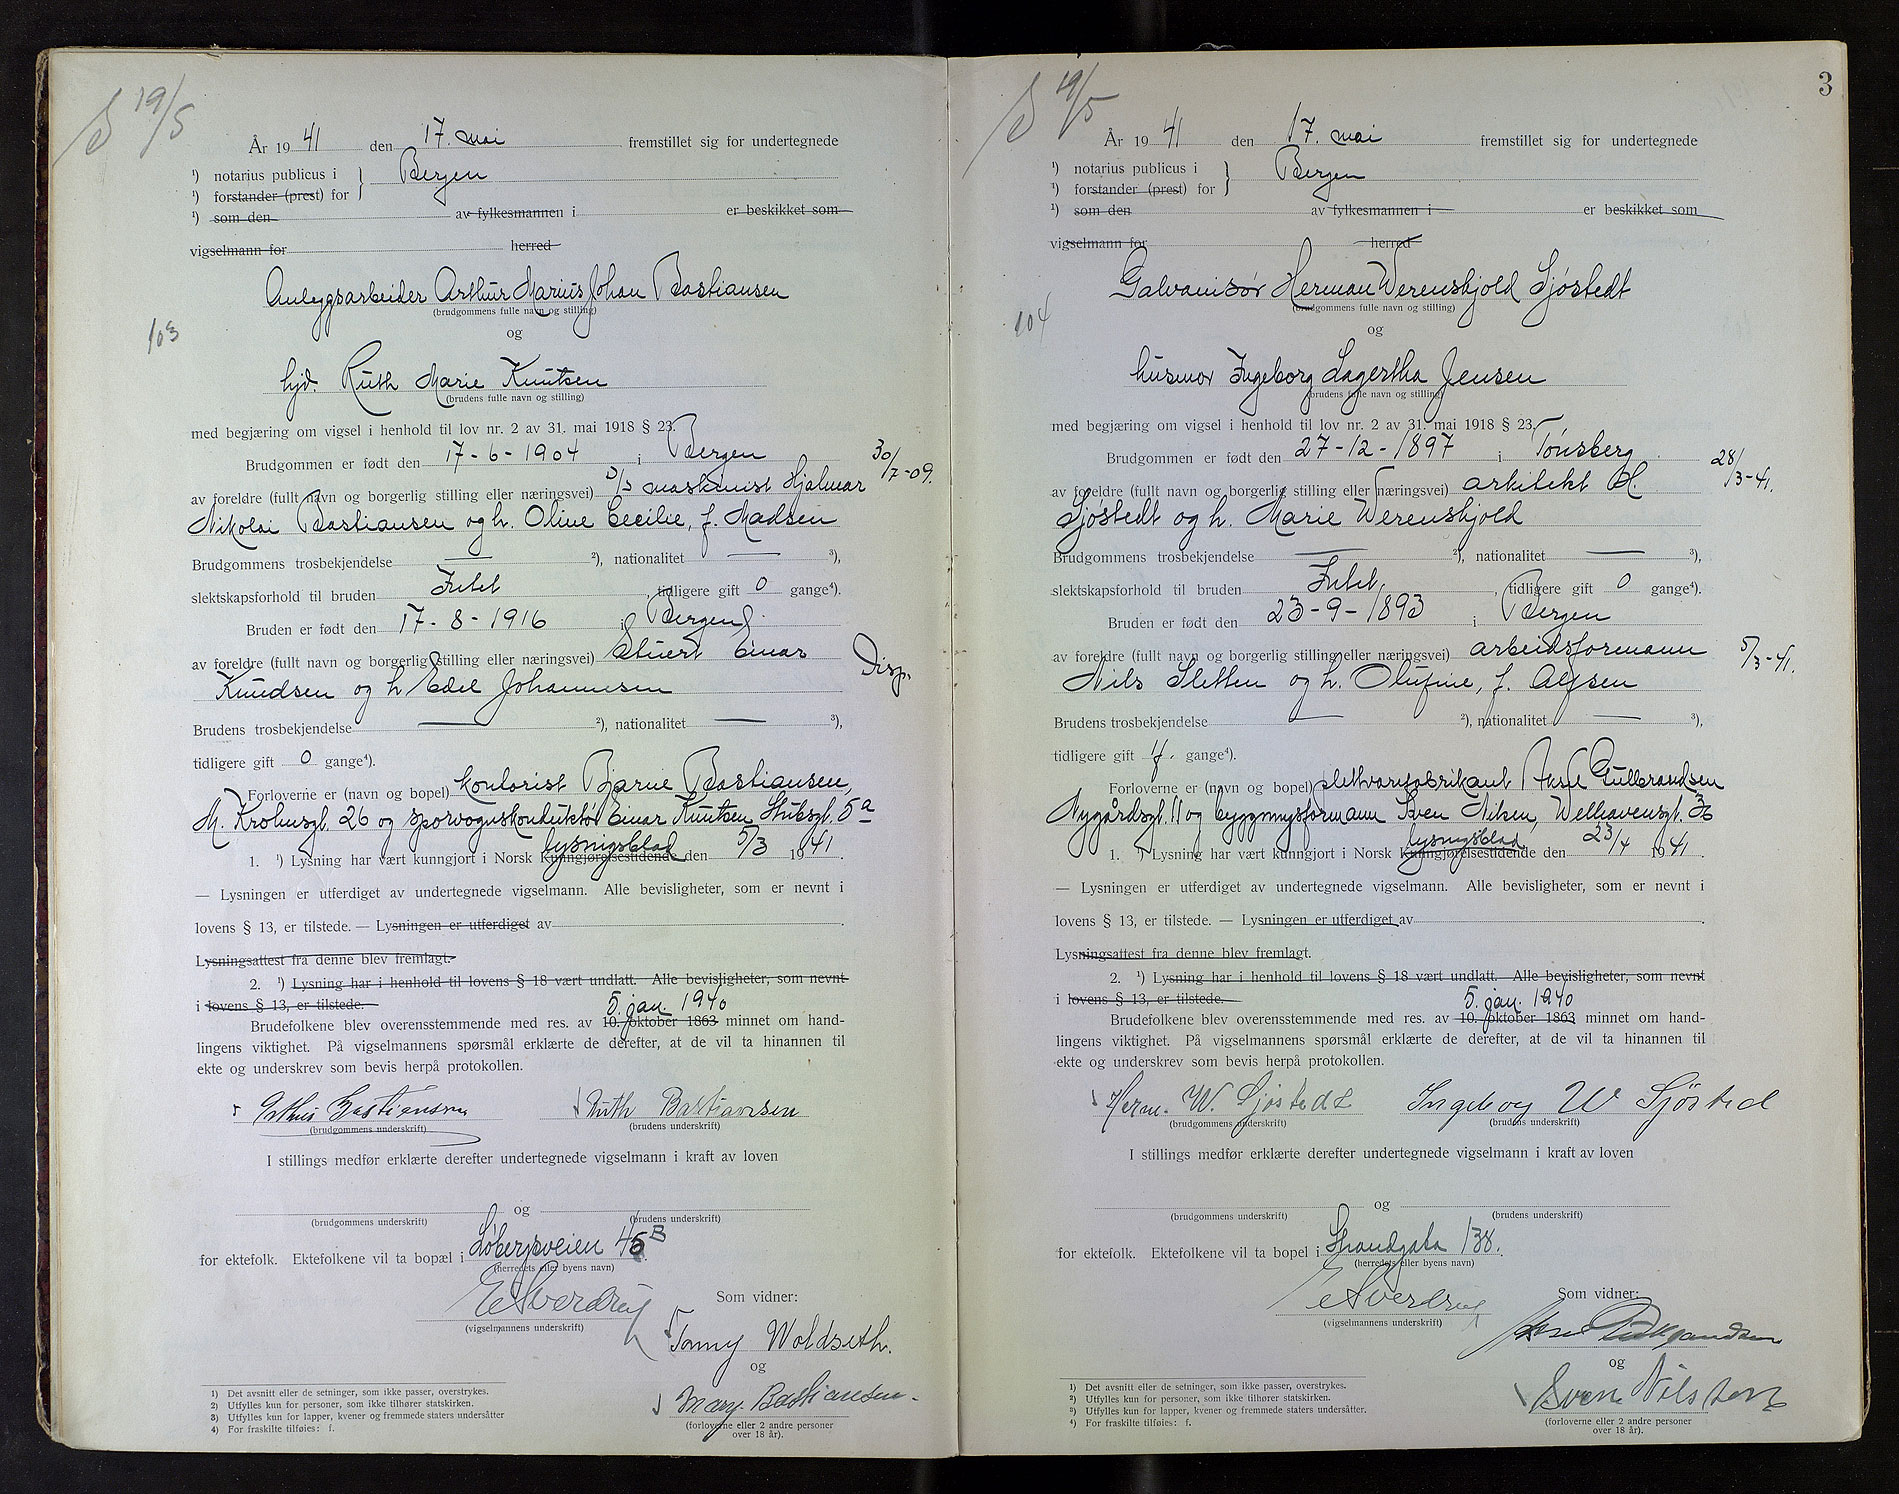 S 19/5
År 19 41 den 17. mai fremstillet sig for undertegnede
¹) notarius publicus i } Bergen
¹) forstander (prest) for
¹) som den av fylkesmannen i er beskikket som
vigselmann for herred
Anleggsarbeider Arthur Marius Johan Bastiansen
(brudgommens fulle navn og stilling)
103
og
hjd. Ruth Marie Knutsen
(brudens fulle navn og stilling)
med begjæring om vigsel i henhold til lov nr. 2 av 31. mai 1918 § 23.
Brudgommen er født den 17-6-1904 i Bergen 30/7-09.
av foreldre (fullt navn og borgerlig stilling eller næringsvei) D/S maskinist Hjalmar
Nikolai Bastiansen og h. Oline Cecilie, f. Madsen
Brudgommens trosbekjendelse — ²), nationalitet — ³),
slektskapsforhold til bruden Intet, tidligere gift 0 gange⁴).
Bruden er født den 17-8-1916 i Bergen
av foreldre (fullt navn og borgerlig stilling eller næringsvei) Stuert Einar Disp.
Knudsen og h Edel Johannesen
Brudens trosbekjendelse — ²), nationalitet — ³),
tidligere gift 0 gange⁴).
Forloverne er (navn og bopel) kontorist Bjarne Bastiansen,
M. Krohnsgt. 26 og sporvognskonduktør Einar Knutsen Stubsgt. 5a
lysningsblad
1. ¹) Lysning har vært kunngjort i Norsk Kunngjørelsestidende den 5/3 1941.
— Lysningen er utferdiget av undertegnede vigselmann. Alle bevisligheter, som er nevnt i
lovens § 13, er tilstede. — Lysningen er utferdiget av
Lysningsattest fra denne blev fremlagt.
2. ¹) Lysning har i henhold til lovens § 18 vært undlatt. Alle bevisligheter, som nevnt
i lovens § 13, er tilstede.
5. jan 1940
Brudefolkene blev overensstemmende med res. av 10. oktober 1863 minnet om hand-
lingens viktighet. På vigselmannens spørsmål erklærte de derefter, at de vil ta hinannen til
ekte og underskrev som bevis herpå protokollen.
Arthur Bastiansen Ruth Bastiansen
(brudgommens underskrift) (brudens underskrift)
I stillings medfør erklærte derefter undertegnede vigselmann i kraft av loven
og
(brudgommens underskrift) (brudens underskrift)
for ektefolk. Ektefolkene vil ta bopæl i Løbergsveien 45B
(herredets eller byens navn)
E Sverdrup Som vidner:
(vigselmannens underskrift)
Tonny Woldseth.
og
Mary Bastiansen
(forloverne eller 2 andre personer
over 18 år).
1) Det avsnitt eller de setninger, som ikke passer, overstrykes.
2) Utfylles kun for personer, som ikke tilhører statskirken.
3) Utfylles kun for lapper, kvener og fremmede staters undersåtter
4) For fraskilte tilføies: f.
3
S 19/5
År 19 41 den 17. mai fremstillet sig for undertegnede
¹) notarius publicus i } Bergen
¹) forstander (prest) for
¹) som den av fylkesmannen i er beskikket som
vigselmann for herred
Galvanisør Herman Werenskjold Sjöstedt
(brudgommens fulle navn og stilling)
104
og
husmor Ingeborg Lagertha Jensen
(brudens fulle navn og stilling)
med begjæring om vigsel i henhold til lov nr. 2 av 31. mai 1918 § 23.
Brudgommen er født den 27-12-1897 i Tønsberg 28/3-41.
av foreldre (fullt navn og borgerlig stilling eller næringsvei) arkitekt H.
Sjöstedt og h. Marie Werenskjold
Brudgommens trosbekjendelse — ²), nationalitet — ³),
slektskapsforhold til bruden Intet, tidligere gift 0 gange⁴).
Bruden er født den 23-9-1893 i Bergen
av foreldre (fullt navn og borgerlig stilling eller næringsvei) arbeidsformann 5/3-41.
Nils Sletten og h. Olufine, f. Alfsen
Brudens trosbekjendelse — ²), nationalitet — ³),
tidligere gift f. gange⁴).
Forloverne er (navn og bopel) plettvarefabrikant Aksel Gulbrandsen
Nygårdsgt. 11 og byggmgsformann Sven Nilsen, Welhavensgt. 36
lysningsblad
1. ¹) Lysning har vært kunngjort i Norsk Kunngjørelsestidende den 23/4 1941.
— Lysningen er utferdiget av undertegnede vigselmann. Alle bevisligheter, som er nevnt i
lovens § 13, er tilstede. — Lysningen er utferdiget av
Lysningsattest fra denne blev fremlagt.
2. ¹) Lysning har i henhold til lovens § 18 vært undlatt. Alle bevisligheter, som nevnt
i lovens § 13, er tilstede.
5. jan. 1940
Brudefolkene blev overensstemmende med res. av 10. oktober 1863 minnet om hand-
lingens viktighet. På vigselmannens spørsmål erklærte de derefter, at de vil ta hinannen til
ekte og underskrev som bevis herpå protokollen.
Herm. W. Sjöstedt Ingeborg W Sjösted
(brudgommens underskrift) (brudens underskrift)
I stillings medfør erklærte derefter undertegnede vigselmann i kraft av loven
og
(brudgommens underskrift) (brudens underskrift)
for ektefolk. Ektefolkene vil ta bopel i Strandgata 138.
(herredets eller byens navn)
E Sverdrup Som vidner:
(vigselmannens underskrift)
Aksel Gulbrandsen
og
Sven Nilsen
(forloverne eller 2 andre personer
over 18 år).
1) Det avsnitt eller de setninger, som ikke passer, overstrykes.
2) Utfylles kun for personer, som ikke tilhører statskirken.
3) Utfylles kun for lapper, kvener og fremmede staters undersåtter.
4) For fraskilte tilføies: f.